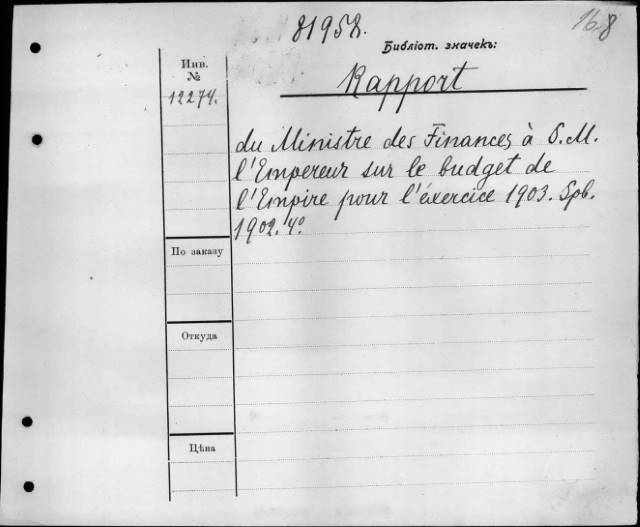 81958.
168
Библіот. значекъ:
Инв.
№
12274.
Rapport
du Ministre des Finances à S. M.
l'Empereur sur le budget de
l'Empire pour l'éxercice 1903. Spb.
1902. 4°
По заказу
Откуда
Цѣна